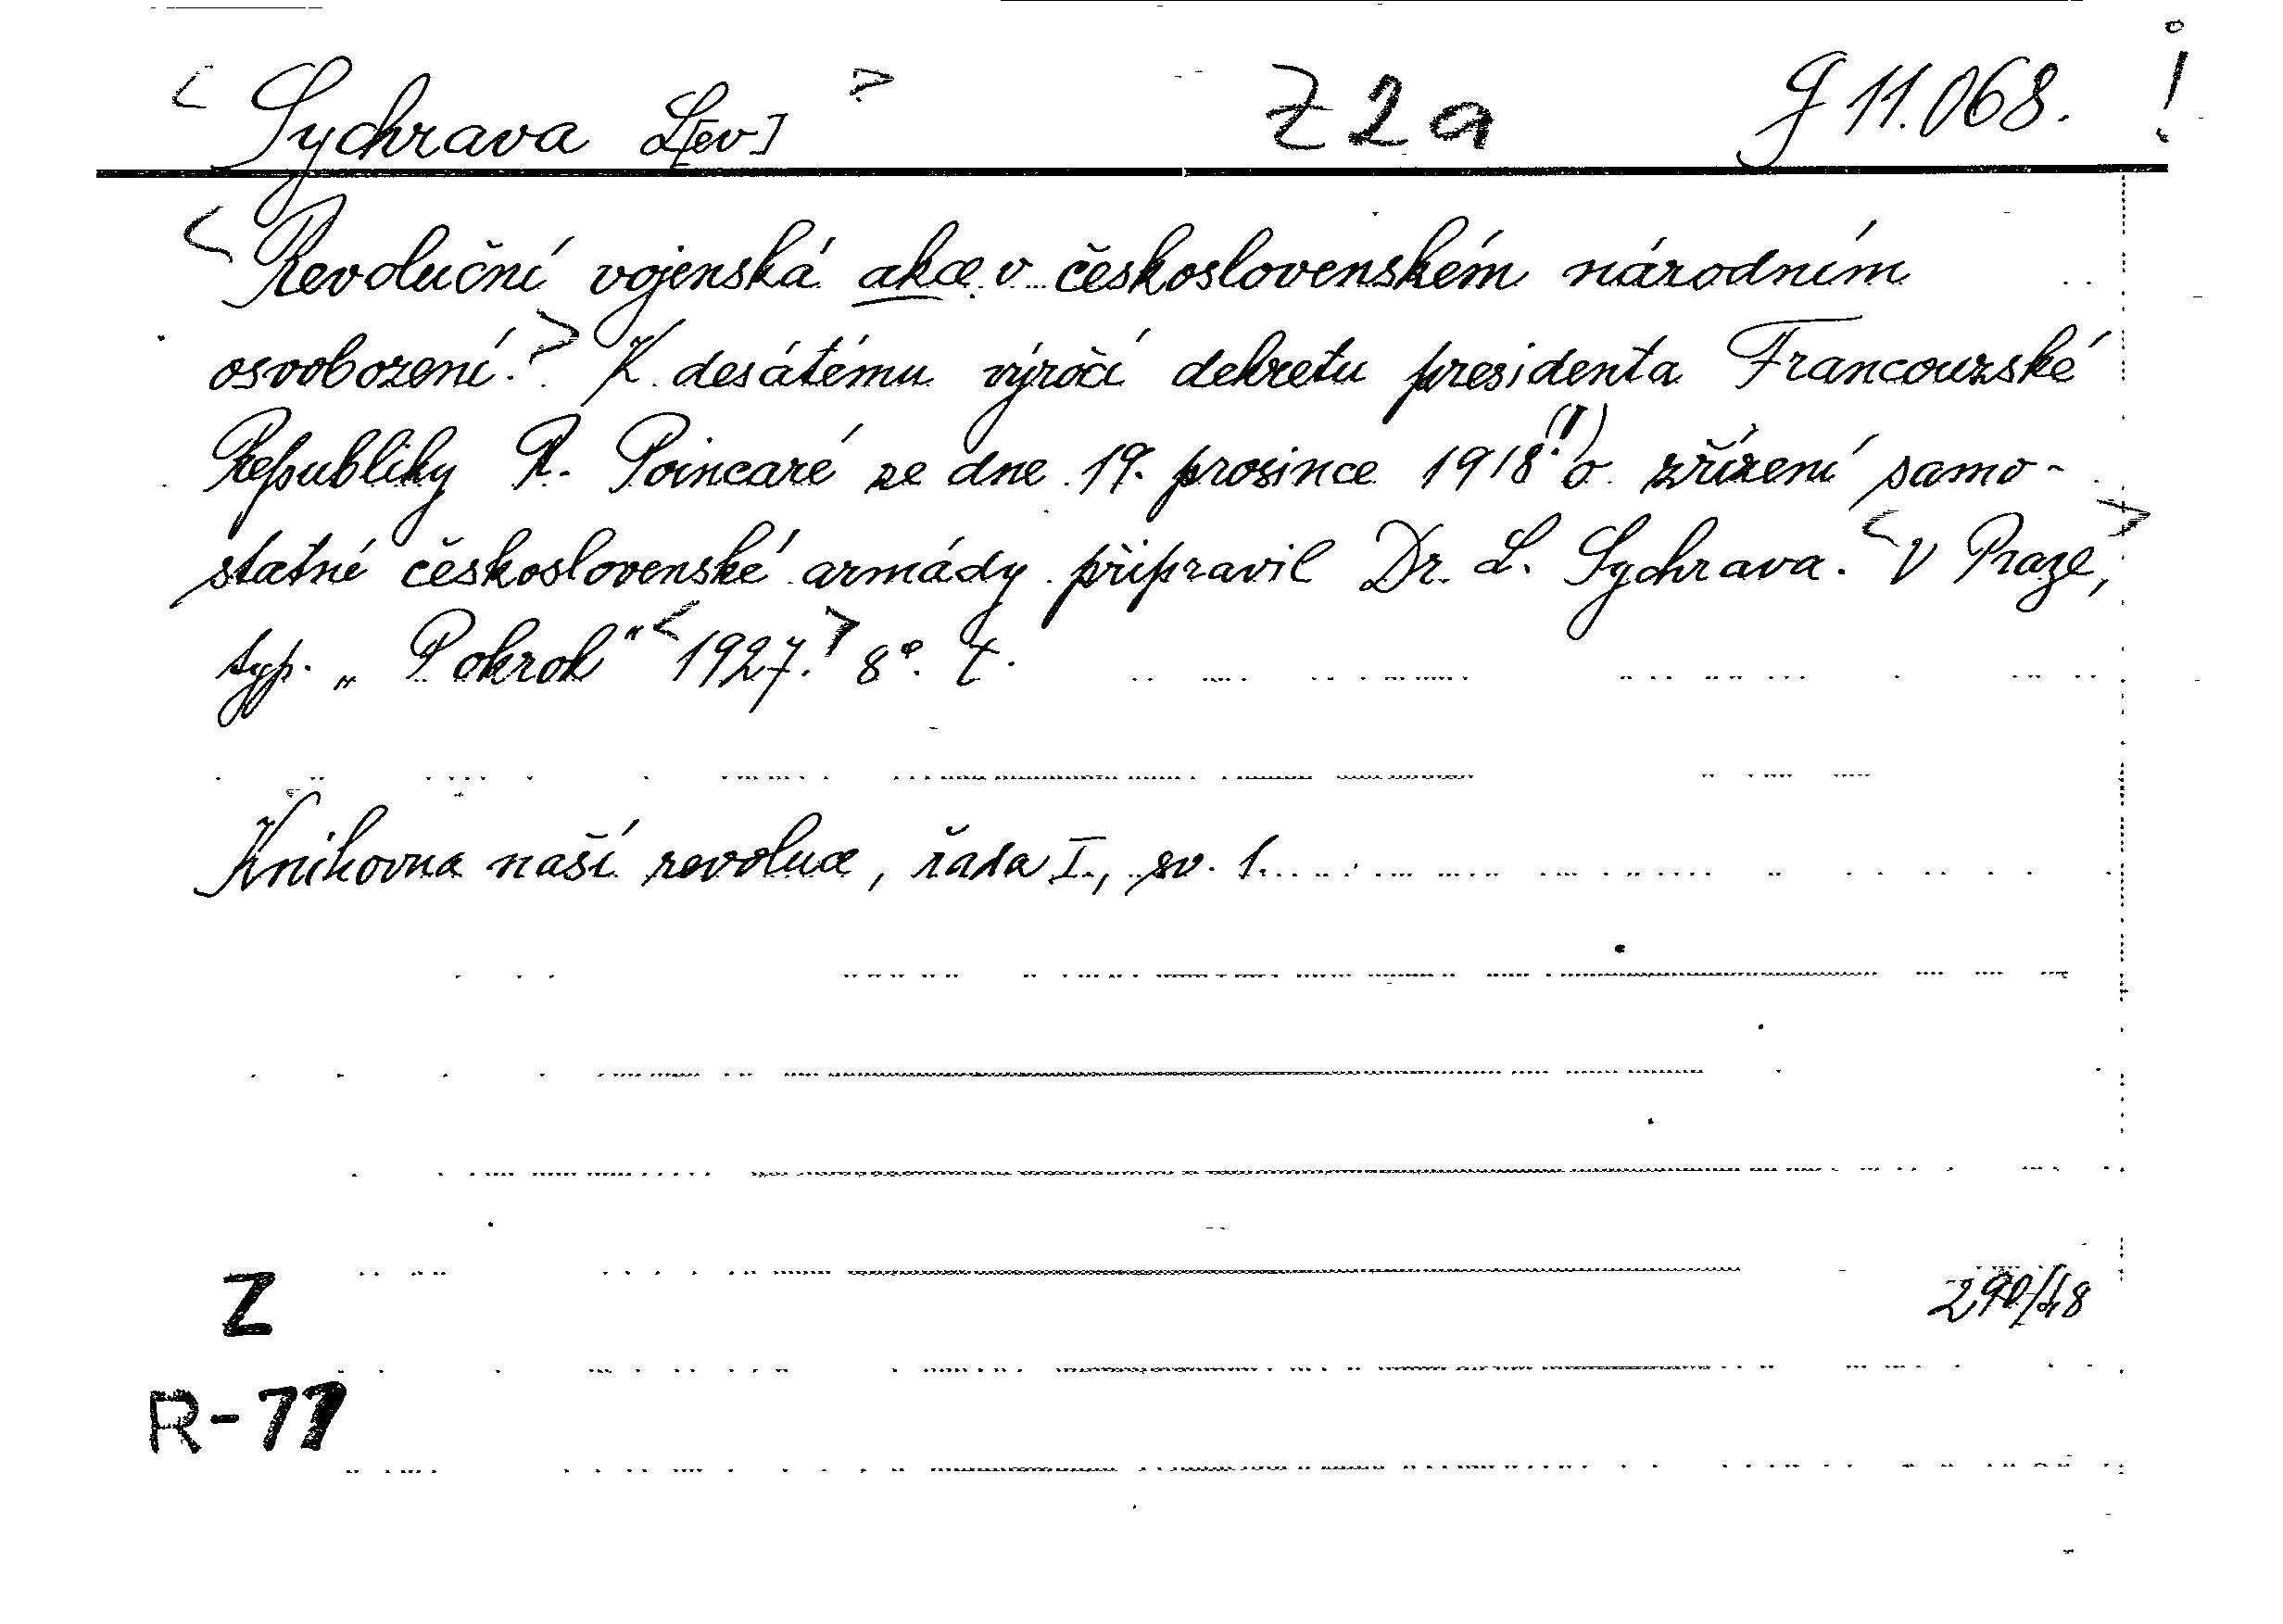 < Sychrava L[ev] > Z 2 a G 11.068. !
< Revoluční vojenská akce v československém národním
osvobození. > K desátému výročí dekretu presidenta Francouzské
Republiky R. Poincaré ze dne 19. prosince 1918(!) o zřízení samo-
statné československé armády připravil Dr. L. Sychrava. < V Praze, >
typ. „Pokrok“ < 1927. > 8°.
Knihovna naší revoluce, řada I., sv. 1.
Z
R-77